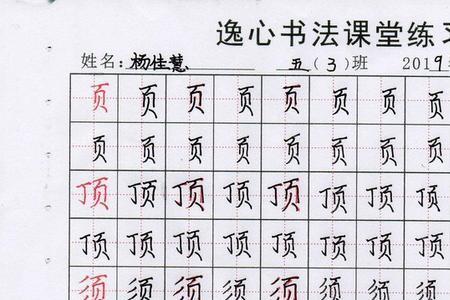 逸心书法课堂练习
姓名: 杨佳慧 五(3)班 2019
页页页页页页页页
页页页页页页页页
顶顶顶顶顶顶顶顶
顶顶顶顶顶顶顶顶
须须须须须须须须